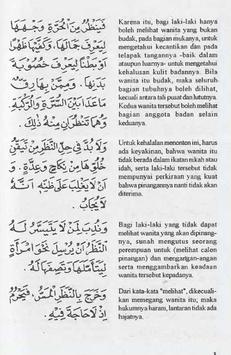 فَيَنْظُرُ مِنَ الْحُرَّةِ وَجْهَهَا
لِيَعْرِفَ جَمَالَهَا، وَكَفَّيْهَا ظَهْرًا
أَوْ بَطْنًا لِيَعْرِفَ خُصُوبَةَ
بَدَنِهَا. وَمِمَّنْ بِهَا رِقٌّ
مَا عَدَا بَيْنَ السُّرَّةِ وَالرُّكْبَةِ.
وَهُمَا تَنْظُرَانِ مِنْهُ ذَلِكَ.
وَلَا بُدَّ فِي حِلِّ النَّظَرِ مِنْ تَيَقُّنِ
خُلُوِّهَا مِنْ نِكَاحٍ وَعِدَّةٍ. وَ
أَنْ لَا يَغْلِبَ عَلَى ظَنِّهِ أَنَّهُ
لَا يُجَابُ.
وَنُدِبَ لِمَنْ لَا يَتَيَسَّرُ لَهُ
النَّظَرُ أَنْ يُرْسِلَ نَحْوَ امْرَأَةٍ
لِيَتَأَمَّلَهَا وَتَصِفَهَا لَهُ.
وَخَرَجَ بِالنَّظَرِ الْمَسُّ، فَيَحْرُمُ
إِذْ لَا حَاجَةَ إِلَيْهِ.
Karena itu, bagi laki-laki hanya
boleh melihat wanita yang bukan
budak, pada bagian mukanya, untuk
mengetahui kecantikan dan pada
telapak tangannya -baik dalam
ataupun luarnya- untuk mengetahui
kehalusan kulit badannya. Bila
wanita itu budak, maka seluruh
bagian tubuhnya boleh dilihat,
kecuali antara pusat dan lututnya.
Kedua wanita tersebut boleh melihat
bagian anggota badan selain
keduanya.
Untuk kehalalan menonton ini, harus
ada keyakinan, bahwa wanita itu
tidak berada dalam ikatan nikah atau
idah, serta laki-laki tersebut tidak
mempunyai perkiraan yang kuat
bahwa pinangannya nanti tidak akan
diterima.
Bagi laki-laki yang tidak dapat
melihat wanita yang akan dipinang-
nya, sunah mengutus seorang
perempuan untuk (melihat calon
pinangan) dan mengangan-angan
serta menggambarkan keadaan
wanita tersebut kepadanya.
Dari kata-kata "melihat", dikecuali-
kan memegang wanita itu, maka
hukumnya haram, lantaran tidak ada
hajatnya.